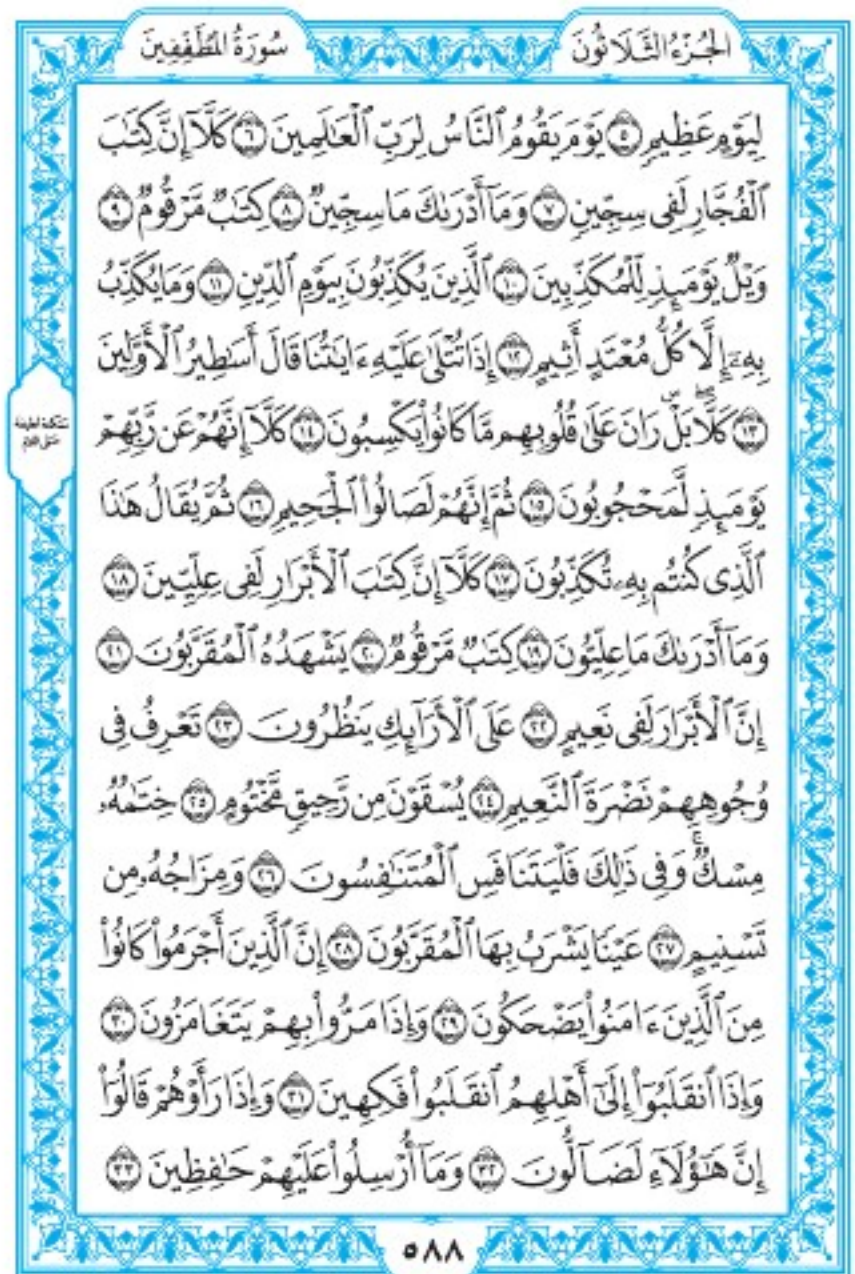 الجُزْءُ الثَّلَاثُونَ
سُورَةُ المُطَفِّفِينَ
لِيَوْمٍ عَظِيمٍ ٥ يَوْمَ يَقُومُ ٱلنَّاسُ لِرَبِّ ٱلْعَٰلَمِينَ ٦ كَلَّآ إِنَّ كِتَٰبَ
ٱلْفُجَّارِ لَفِى سِجِّينٍ ٧ وَمَآ أَدْرَىٰكَ مَا سِجِّينٌ ٨ كِتَٰبٌ مَّرْقُومٌ ٩
وَيْلٌ يَوْمَئِذٍ لِّلْمُكَذِّبِينَ ١٠ ٱلَّذِينَ يُكَذِّبُونَ بِيَوْمِ ٱلدِّينِ ١١ وَمَا يُكَذِّبُ
بِهِۦٓ إِلَّا كُلُّ مُعْتَدٍ أَثِيمٍ ١٢ إِذَا تُتْلَىٰ عَلَيْهِ ءَايَٰتُنَا قَالَ أَسَٰطِيرُ ٱلْأَوَّلِينَ
١٣ كَلَّا ۖ بَلْ ۜ رَانَ عَلَىٰ قُلُوبِهِم مَّا كَانُوا۟ يَكْسِبُونَ ١٤ كَلَّآ إِنَّهُمْ عَن رَّبِّهِمْ
يَوْمَئِذٍ لَّمَحْجُوبُونَ ١٥ ثُمَّ إِنَّهُمْ لَصَالُوا۟ ٱلْجَحِيمِ ١٦ ثُمَّ يُقَالُ هَٰذَا
ٱلَّذِى كُنتُم بِهِۦ تُكَذِّبُونَ ١٧ كَلَّآ إِنَّ كِتَٰبَ ٱلْأَبْرَارِ لَفِى عِلِّيِّينَ ١٨
وَمَآ أَدْرَىٰكَ مَا عِلِّيُّونَ ١٩ كِتَٰبٌ مَّرْقُومٌ ٢٠ يَشْهَدُهُ ٱلْمُقَرَّبُونَ ٢١
إِنَّ ٱلْأَبْرَارَ لَفِى نَعِيمٍ ٢٢ عَلَى ٱلْأَرَآئِكِ يَنظُرُونَ ٢٣ تَعْرِفُ فِى
وُجُوهِهِمْ نَضْرَةَ ٱلنَّعِيمِ ٢٤ يُسْقَوْنَ مِن رَّحِيقٍ مَّخْتُومٍ ٢٥ خِتَٰمُهُۥ
مِسْكٌ ۚ وَفِى ذَٰلِكَ فَلْيَتَنَافَسِ ٱلْمُتَنَٰفِسُونَ ٢٦ وَمِزَاجُهُۥ مِن
تَسْنِيمٍ ٢٧ عَيْنًا يَشْرَبُ بِهَا ٱلْمُقَرَّبُونَ ٢٨ إِنَّ ٱلَّذِينَ أَجْرَمُوا۟ كَانُوا۟
مِنَ ٱلَّذِينَ ءَامَنُوا۟ يَضْحَكُونَ ٢٩ وَإِذَا مَرُّوا۟ بِهِمْ يَتَغَامَزُونَ ٣٠
وَإِذَا ٱنقَلَبُوٓا۟ إِلَىٰٓ أَهْلِهِمُ ٱنقَلَبُوا۟ فَكِهِينَ ٣١ وَإِذَا رَأَوْهُمْ قَالُوٓا۟
إِنَّ هَٰٓؤُلَآءِ لَضَآلُّونَ ٣٢ وَمَآ أُرْسِلُوا۟ عَلَيْهِمْ حَٰفِظِينَ ٣٣
٥٨٨